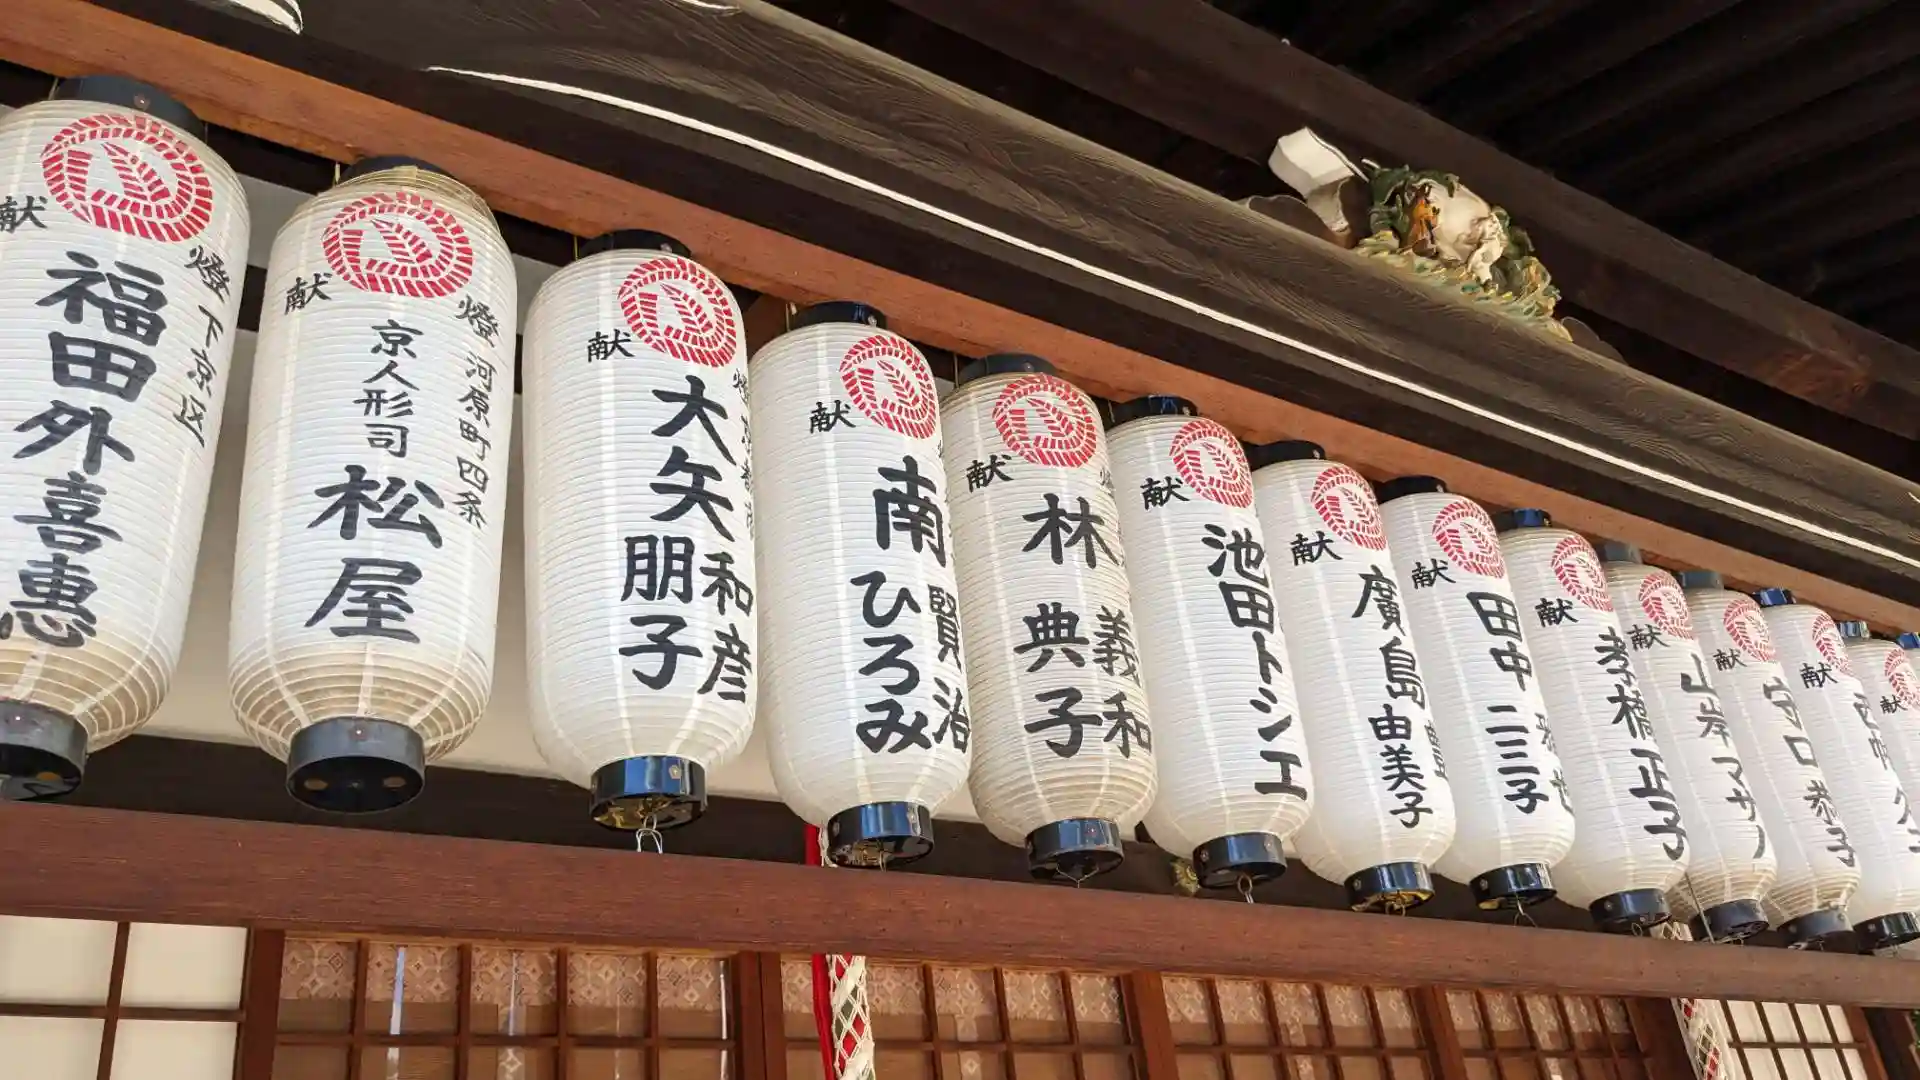 献
燈
下京区
福田外喜惠
献
燈
河原町四条
京人形司
松屋
献
大矢
和彦
朋子
献
南
賢治
ひろみ
献
林
義和
典子
献
池田トシエ
献
廣島
由美子
献
田中
二三子
献
孝橋正子
献
山岸マサノ
献
守口恭子
献
献